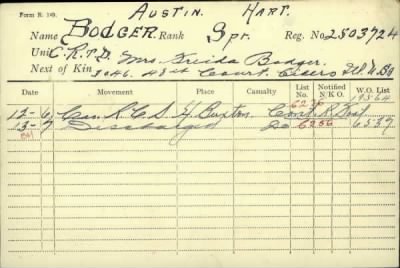 Form R. 149. Austin. Hart.
Name Bodger. Rank Spr. Reg. No. 2503724
Unit C.R.T.D. Mrs. Freida Bodger.
Next of Kin 3046. 48st Court. Cicero Ill. U.S.
Date Movement Place Casualty List No. Notified N/K O. W.O. List
12-6 Can. R.C.S. H. Buxton Cont. 6236 19564
13-7 Discharged Do 6256 6537